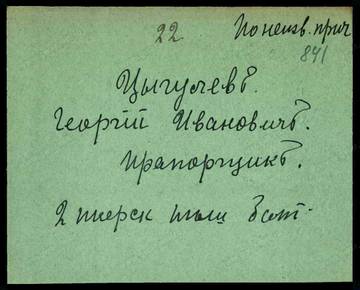 22 По неизв. прич
841
Цыгулевъ.
Георгій Ивановичъ.
Прапорщикъ.
2 тверск тыл бат.